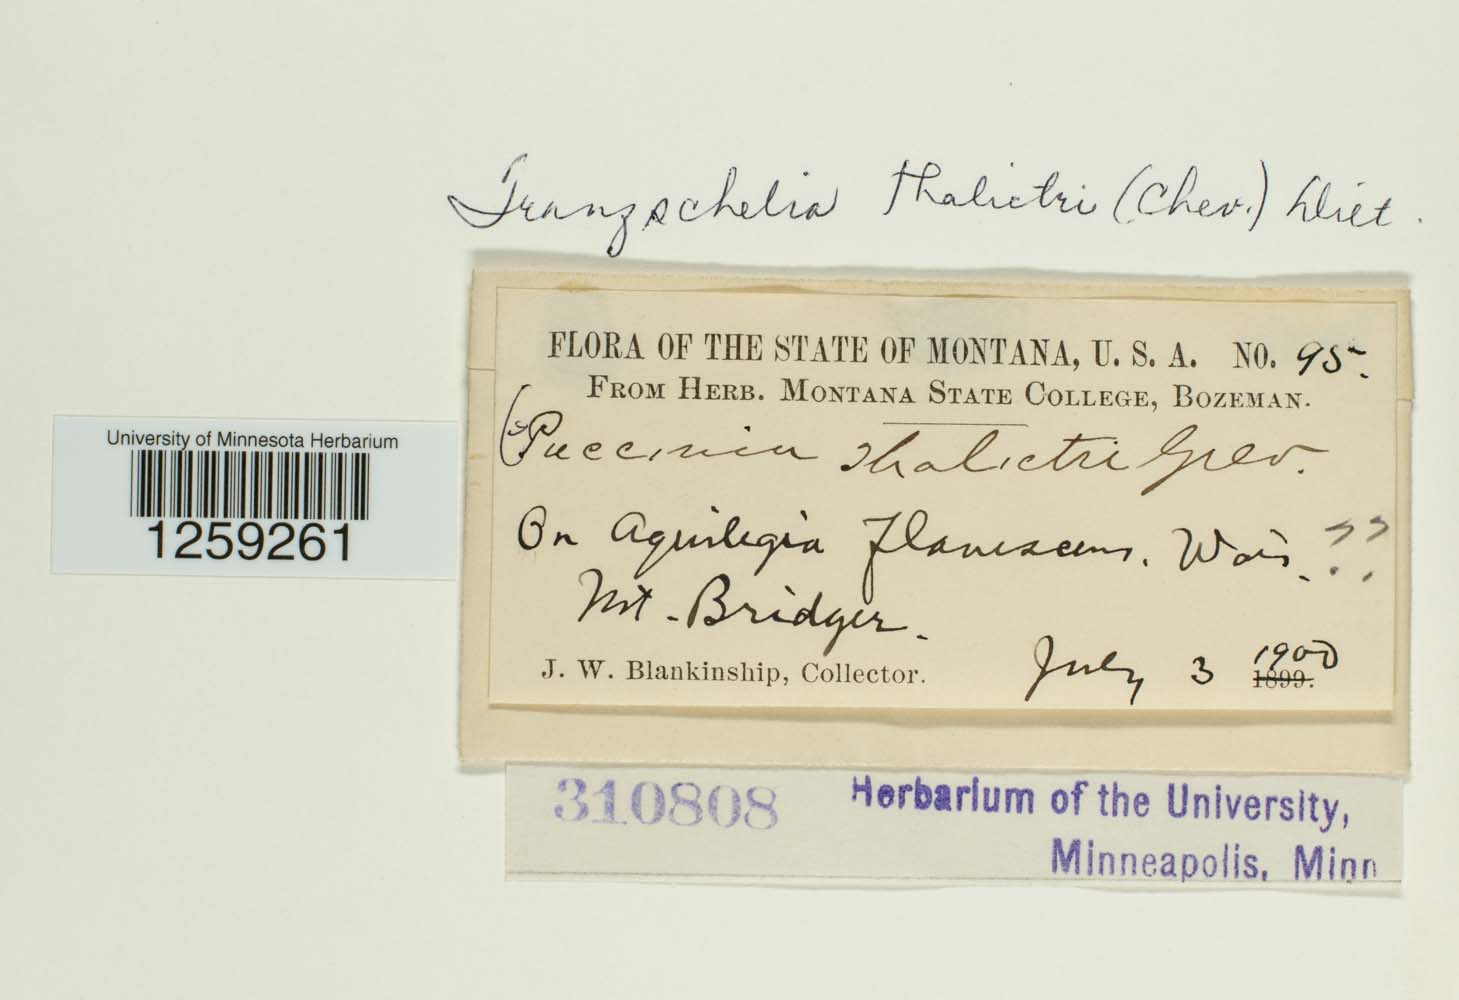 Tranzschelia thalictri (Chev.) Diet.
FLORA OF THE STATE OF MONTANA, U. S. A. NO. 95.
FROM HERB. MONTANA STATE COLLEGE, BOZEMAN.
Puccinia thalictri Grev.
On Aquilegia flavescens. Wats. ??
Mt. Bridger.
J. W. Blankinship, Collector. July 3 1900
1899.
University of Minnesota Herbarium
1259261
310808 Herbarium of the University,
Minneapolis, Minn